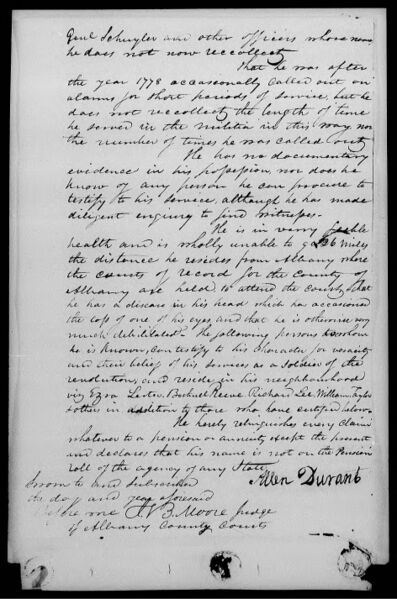 Genl Schuyler and other officers whose name
he does not now recollect
That he was after
the year 1778 accasionally called out on
alarms for short periods of service, but he
does not reccollect the length of time
he served in the militia in this way nor
the number of times he was called out
He has no documentary
evidence in his possession, nor does he
know of any person he can procure to
testify to his service, although he has made
diligent enquiry to find witnesses.
He is in very feeble
health and is wholly unable to go 26 miles
the distance he resides from Albany where
the courts of record for the county of
Albany are held to attend the county, that
he has a disease in his head which has occasioned
the loss of one of his eyes and that he is otherwise very
much debilitated. The following persons to whom
he is known, can testify to his character for veracity
and their belief of his services as a soldier of the
revolution, and reside in his neighbourhood
viz Ezra Lester, Reeve, Richard Lee, William Taylor
& others in addition to those who have certified below
He hereby relinquishes every claim
whatever to a pension or annuity except the present
and declares that his name is not on the Pension
roll of the agency of any State
Allen Durant
Sworn to and subscribed
the day and year aforesaid
before me B Moore Judge
of Albany County Courts